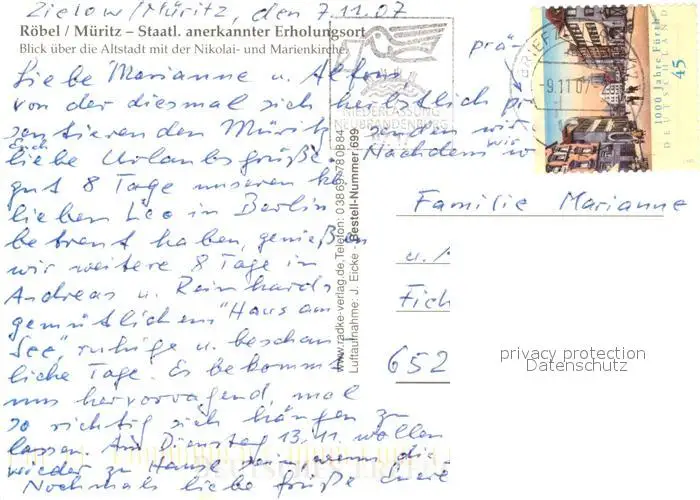 Zielow/Müritz, den 7.11.07
Röbel / Müritz – Staatl. anerkannter Erholungsort
Blick über die Altstadt mit der Nikolai- und Marienkirche
Liebe Marianne u. Alfons
von der diesmal sich herbstlich prä-
sentieren den Müritz senden wir
Euch
liebe Urlaubsgrüße. Nachdem wir
gut 8 Tage unseren
lieben Leo in Berlin
betreut haben, genießen
wir weitere 8 Tage in
Andreas u. Reinhards
gemütlichem "Haus am
See", ruhige u. beschau
liche Tage. Es bekommt
uns hervorragend, mal
so richtig sich hängen zu
lassen. Am Dienstag 13.11. wollen
wieder zu Hause sein wenn die
Nochmals liebe Grüße Eure
www.radke-verlag.de, Telefon: 03869/780884
Luftaufnahme: J. Eicke - Bestell-Nummer 699
NIEDERLASSUNG
NEUBRANDENBURG
BRIEFZ
-9.11.07-
1000 Jahre Fürth
DEUTSCHLAND
45
Familie Marianne
u.
Fich
652
privacy protection
Datenschutz